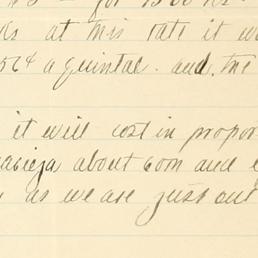 for 1500 lbs.
at this rate it w
56¢ a quintal. and the
it will cost in propor
about 60m and
as we are just out